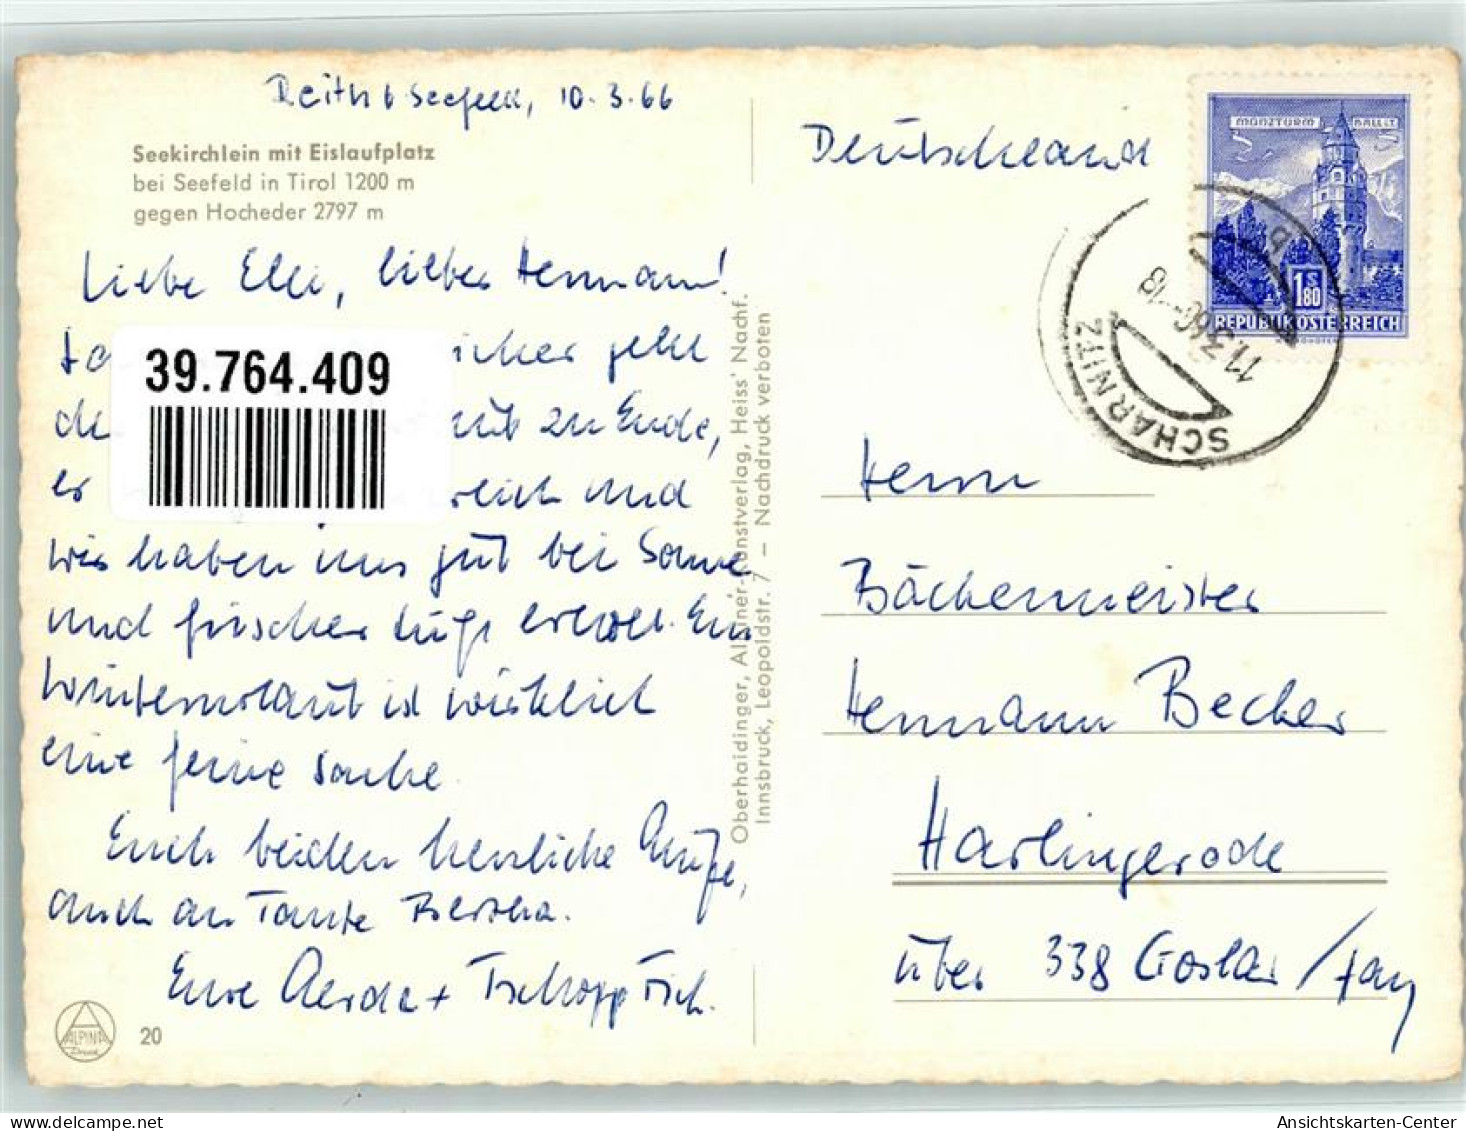 Reith b Seefeld, 10.3.66
Seekirchlein mit Eislaufplatz
bei Seefeld in Tirol 1200 m
gegen Hocheder 2797 m
Liebe Elli, lieber Hermann!
geht
zu Ende,
er und
wir haben uns gut bei Sonne
und frischer Luft erholt. Ein
Winterurlaub ist wirklich
eine feine Sache.
Euch beiden herzliche Grüße,
auch an Tante Bertha.
Eure Gerda +
39.764.409
ALPINA
Druck
20
Oberhaidinger, Alpiner-Kunstverlag, Heiss' Nachf.
Innsbruck, Leopoldstr. 7 — Nachdruck verboten
Deutschland
MÜNZTURM HALL I.T.
1 S 80
REPUBLIK ÖSTERREICH
SCHARNITZ
11.3.66-18
b
Herrn
Bäckermeister
Hermann Becker
Harlingerode
über 338 Goslar /Harz
Ansichtskarten-Center